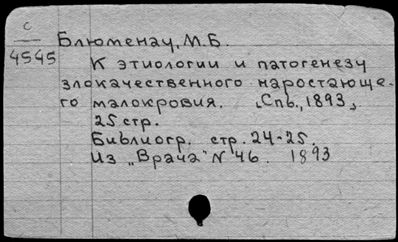 с
4545
Блюменау, М.Б.
К этиологии и патогенезу
злокачественного наростающе-
го малокровия. Спб., 1893,
25 стр.
Библиогр. стр. 24-25.
Из „Врача" N 46. 1893